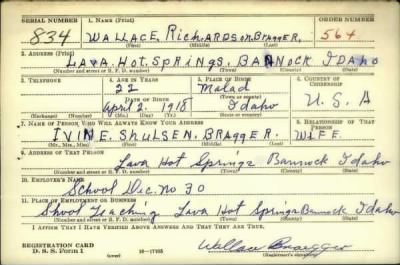 SERIAL NUMBER 1. NAME (Print) ORDER NUMBER
834 WALLACE RICHARDSON BRAGGER. 564
(First) (Middle) (Last)
2. ADDRESS (Print)
LAVA. HOT. SPRINGS. BANNOCK IDAHO
(Number and street or R. F. D. number) (Town) (County) (State)
3. TELEPHONE 4. AGE IN YEARS 5. PLACE OF BIRTH 6. COUNTRY OF CITIZENSHIP
22 Malad
DATE OF BIRTH (Town or county)
April 2. 1918 Idaho U. S. A
(Exchange) (Number) (Mo.) (Day) (Yr.) (State or country)
7. NAME OF PERSON WHO WILL ALWAYS KNOW YOUR ADDRESS 8. RELATIONSHIP OF THAT PERSON
IVINE. SHULSEN. BRAGGER. WIFE
(Mr., Mrs., Miss) (First) (Middle) (Last)
9. ADDRESS OF THAT PERSON
Lava Hot Springs Bannock Idaho
(Number and street or R. F. D. number) (Town) (County) (State)
10. EMPLOYER'S NAME
School Dic. No 30
11. PLACE OF EMPLOYMENT OR BUSINESS
Shool Teaching Lava Hot Springs Bannock Idaho
(Number and street or R. F. D. number) (Town) (County) (State)
I AFFIRM THAT I HAVE VERIFIED ABOVE ANSWERS AND THAT THEY ARE TRUE.
REGISTRATION CARD
D. S. S. Form 1 (over) 16-17105 Wallace Braegger
(Registrant's signature)